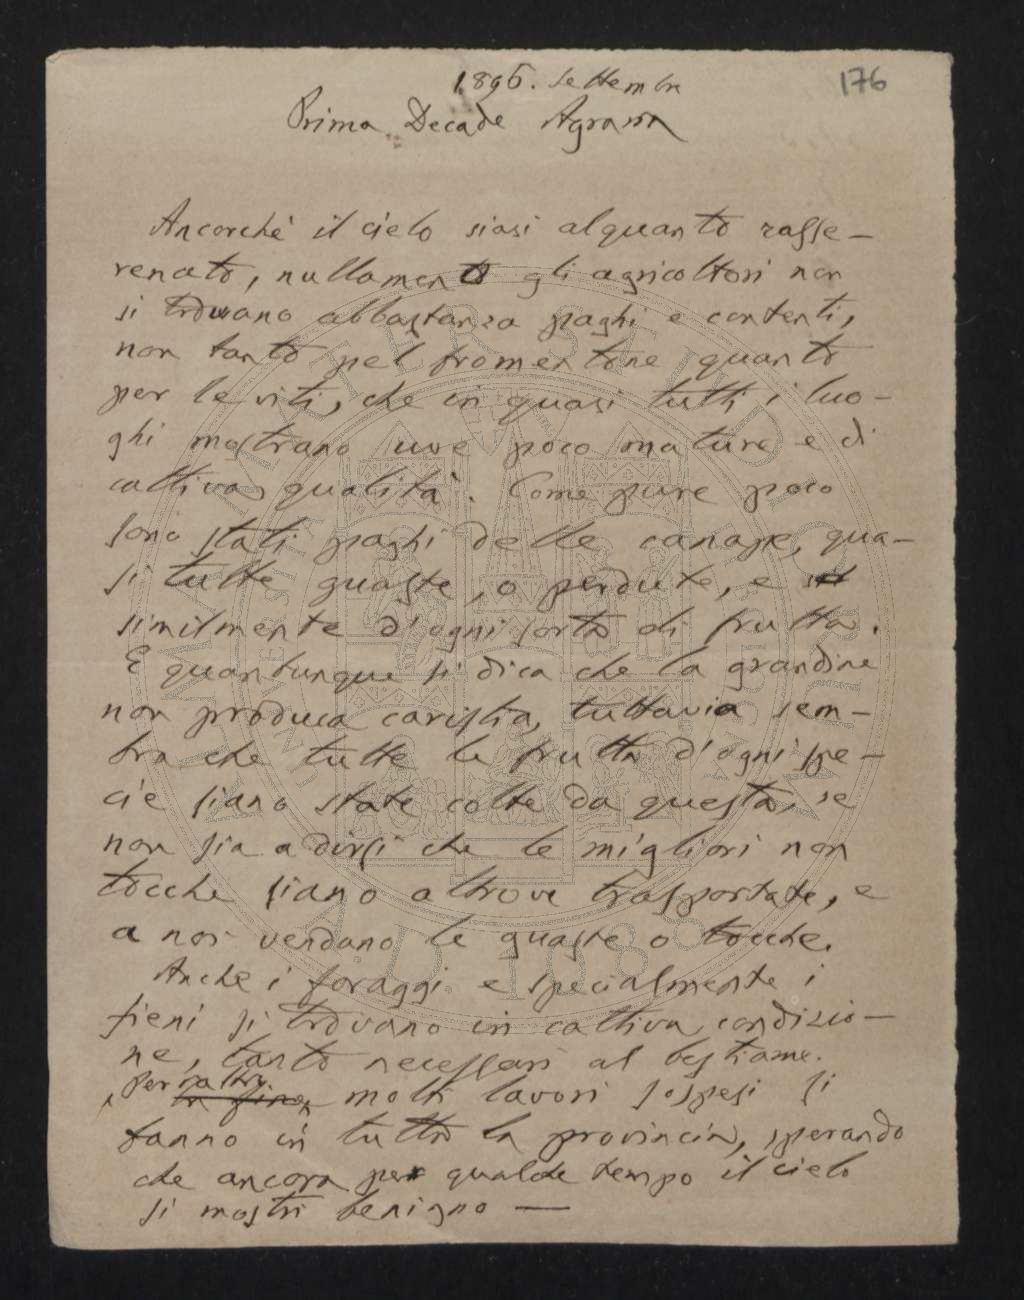 176
1896. Settembre
Prima Decade Agraria
Ancorchè il cielo siasi alquanto rasse-
renato, nullamento gli agricoltori non
si trovano abbastanza paghi e contenti,
non tanto pel fromentone quanto
per le viti, che in quasi tutti i luo-
ghi mostrano uve poco mature e di
cattiva qualità. Come pure poco
sono stati paghi delle canape, qua-
si tutte guaste, o perdute, e
similmente d'ogni sorta di frutta.
E quantunque si dica che la grandine
non produca caristia, tuttavia sem-
bra che tutte le frutta d'ogni spe-
cie siano state colte da questa, se
non sia a dirsi che le migliori non
tocche siano altrove trasportate, e
a noi vendano le guaste o tocche.
Anche i foraggi e specialmente i
fieni si trovano in cattiva condizio-
ne, tanto necessari al bestiame.
Per altro molti lavori sospesi si
fanno in tutta la provincia, sperando
che ancora per qualche tempo il cielo
si mostri benigno —
ALMA MATER STUDIORUM
A.D. 1088